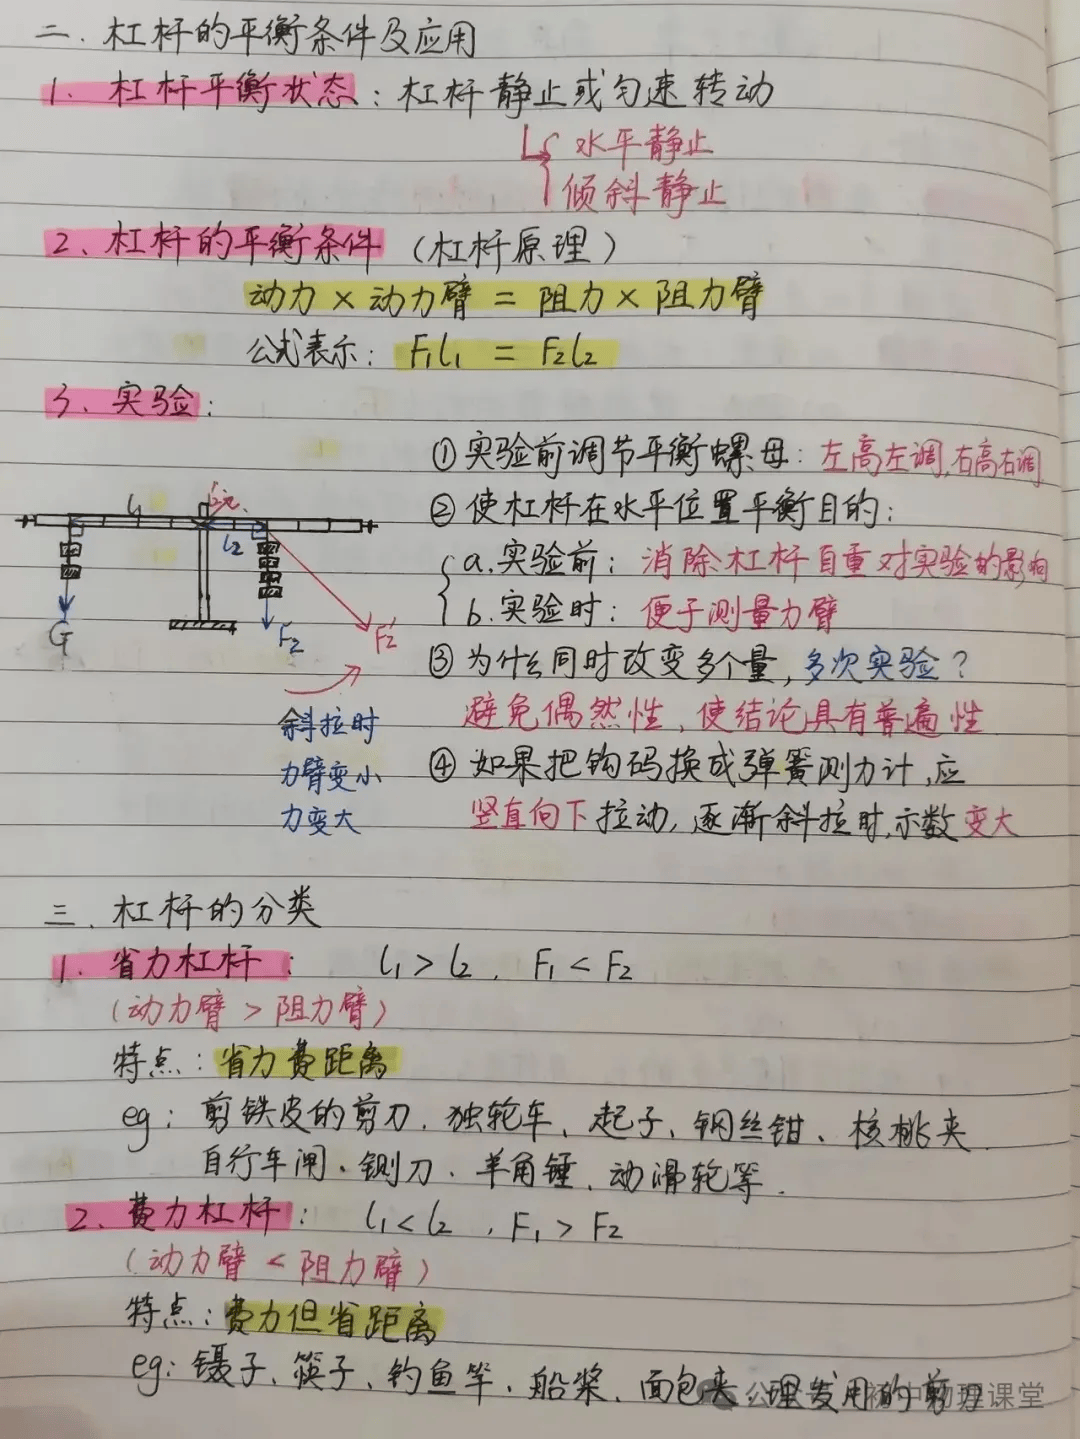 二.杠杆的平衡条件及应用
1、杠杆平衡状态:杠杆静止或匀速转动
水平静止
倾斜静止
2、杠杆的平衡条件(杠杆原理)
动力×动力臂=阻力×阻力臂
公式表示:F₁l₁=F₂l₂
3、实验:
①实验前调节平衡螺母:左高左调,右高右调
②使杠杆在水平位置平衡目的:
a.实验前:消除杠杆自重对实验的影响
b.实验时:便于测量力臂
③为什么同时改变多个量,多次实验?
避免偶然性,使结论具有普遍性
④如果把钩码换成弹簧测力计,应
竖直向下拉动,逐渐斜拉时,示数变大
l₁
l₂
G
F₂
F₂′
斜拉时
力臂变小
力变大
三.杠杆的分类
1.省力杠杆:l₁>l₂.F₁<F₂
(动力臂>阻力臂)
特点:省力费距离
eg:剪铁皮的剪刀.独轮车、起子、钢丝钳、核桃夹.
自行车闸、铡刀.羊角锤.动滑轮等.
2.费力杠杆:l₁<l₂,F₁>F₂
(动力臂<阻力臂)
特点:费力但省距离
eg:镊子、筷子、钓鱼竿、船桨.面包夹.理发用的剪刀
公众号·初中物理课堂